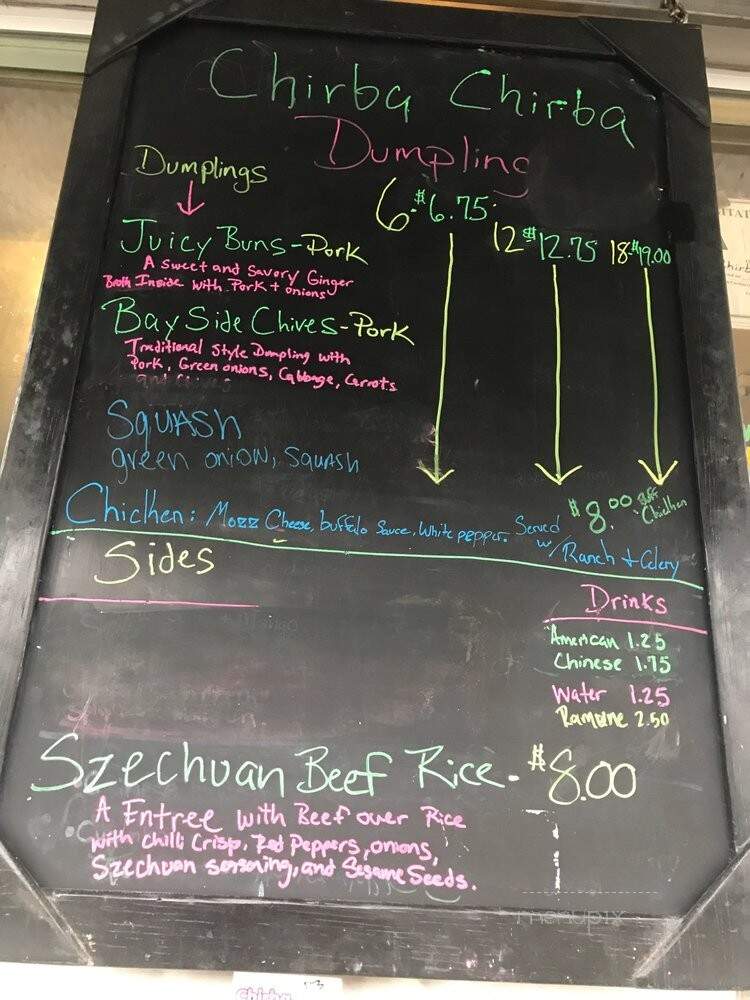 Chirba Chirba
Dumpling
Dumplings
6-$6.75
12 $12.75
18-$19.00
Juicy Buns-Pork
A sweet and Savory Ginger
Broth Inside with Pork + onions
Bay Side Chives-Pork
Traditional Style Dumpling with
Pork, Green onions, Cabbage, Carrots
Squash
green onion, Squash
Chichen: Mozz Cheese, buffalo Sauce, White pepper. Served
w/ Ranch + Celery
$8.00
Sides
Drinks
American 1.25
Chinese 1.75
Water 1.25
Ramune 2.50
Szechuan Beef Rice - $8.00
A Entree with Beef over Rice
with chilli Crisp, Red Peppers, onions,
Szechuan seasoning, and Sesame Seeds.
menupix